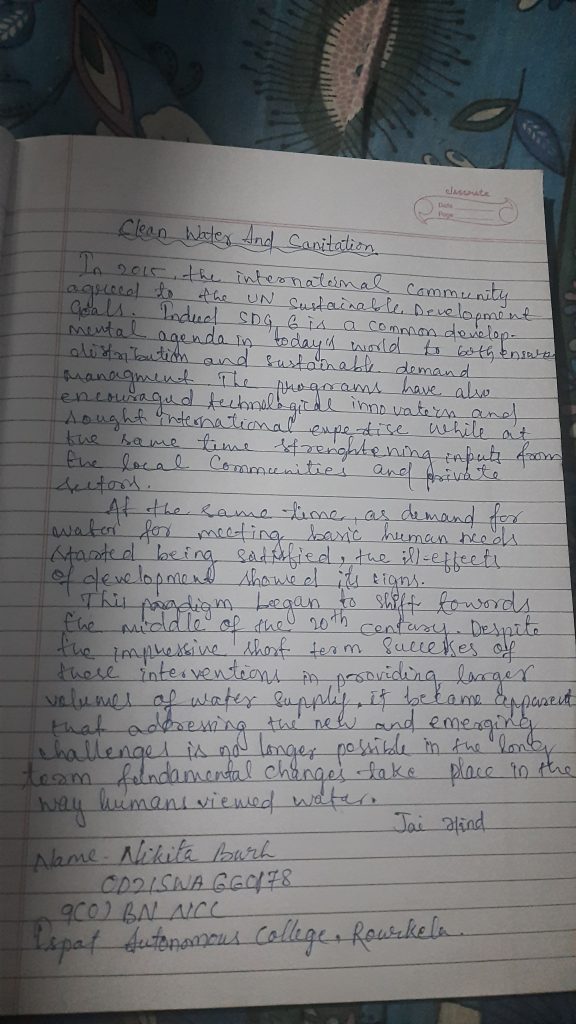 classmate
Date
Page
Clean Water And Sanitation
In 2015, the international Community
agreed to the UN Sustainable Development
Goals. Indeed SDG 6 is a common develop-
mental agenda in today's world to both ensure
distribution and sustainable demand
managment The programs have also
encouraged technological innovatern and
sought international expertise while at
the same time strenghtening inputs from
the local Communities and private
sectors.
At the same time, as demand for
water for meeting basic human needs
started being satisfied, the ill-effects
of development showed its signs.
This paradigm began to shift towords
the middle of the 20th century. Despite
the impressive short term successes of
these interventions in providing larger
volumes of water supply, it became apparent
that addressing the new and emerging
challenges is no longer possible in the long
term fundamental changes take place in the
way humans viewed water.
Jai Hind
Name - Nikita Burh
9(O) BN NCC
Ispat Autonomous College, Rourkela.